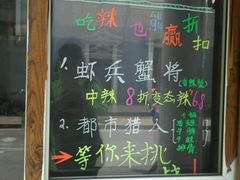 吃辣也赢折扣
1. 虾兵蟹将
中辣8折变态辣6.8
2. 都市猎人
等你来挑战